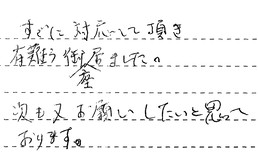 すぐに対応して頂き
有難う御座居ました。
次も又お願いしたいと思って
おります。